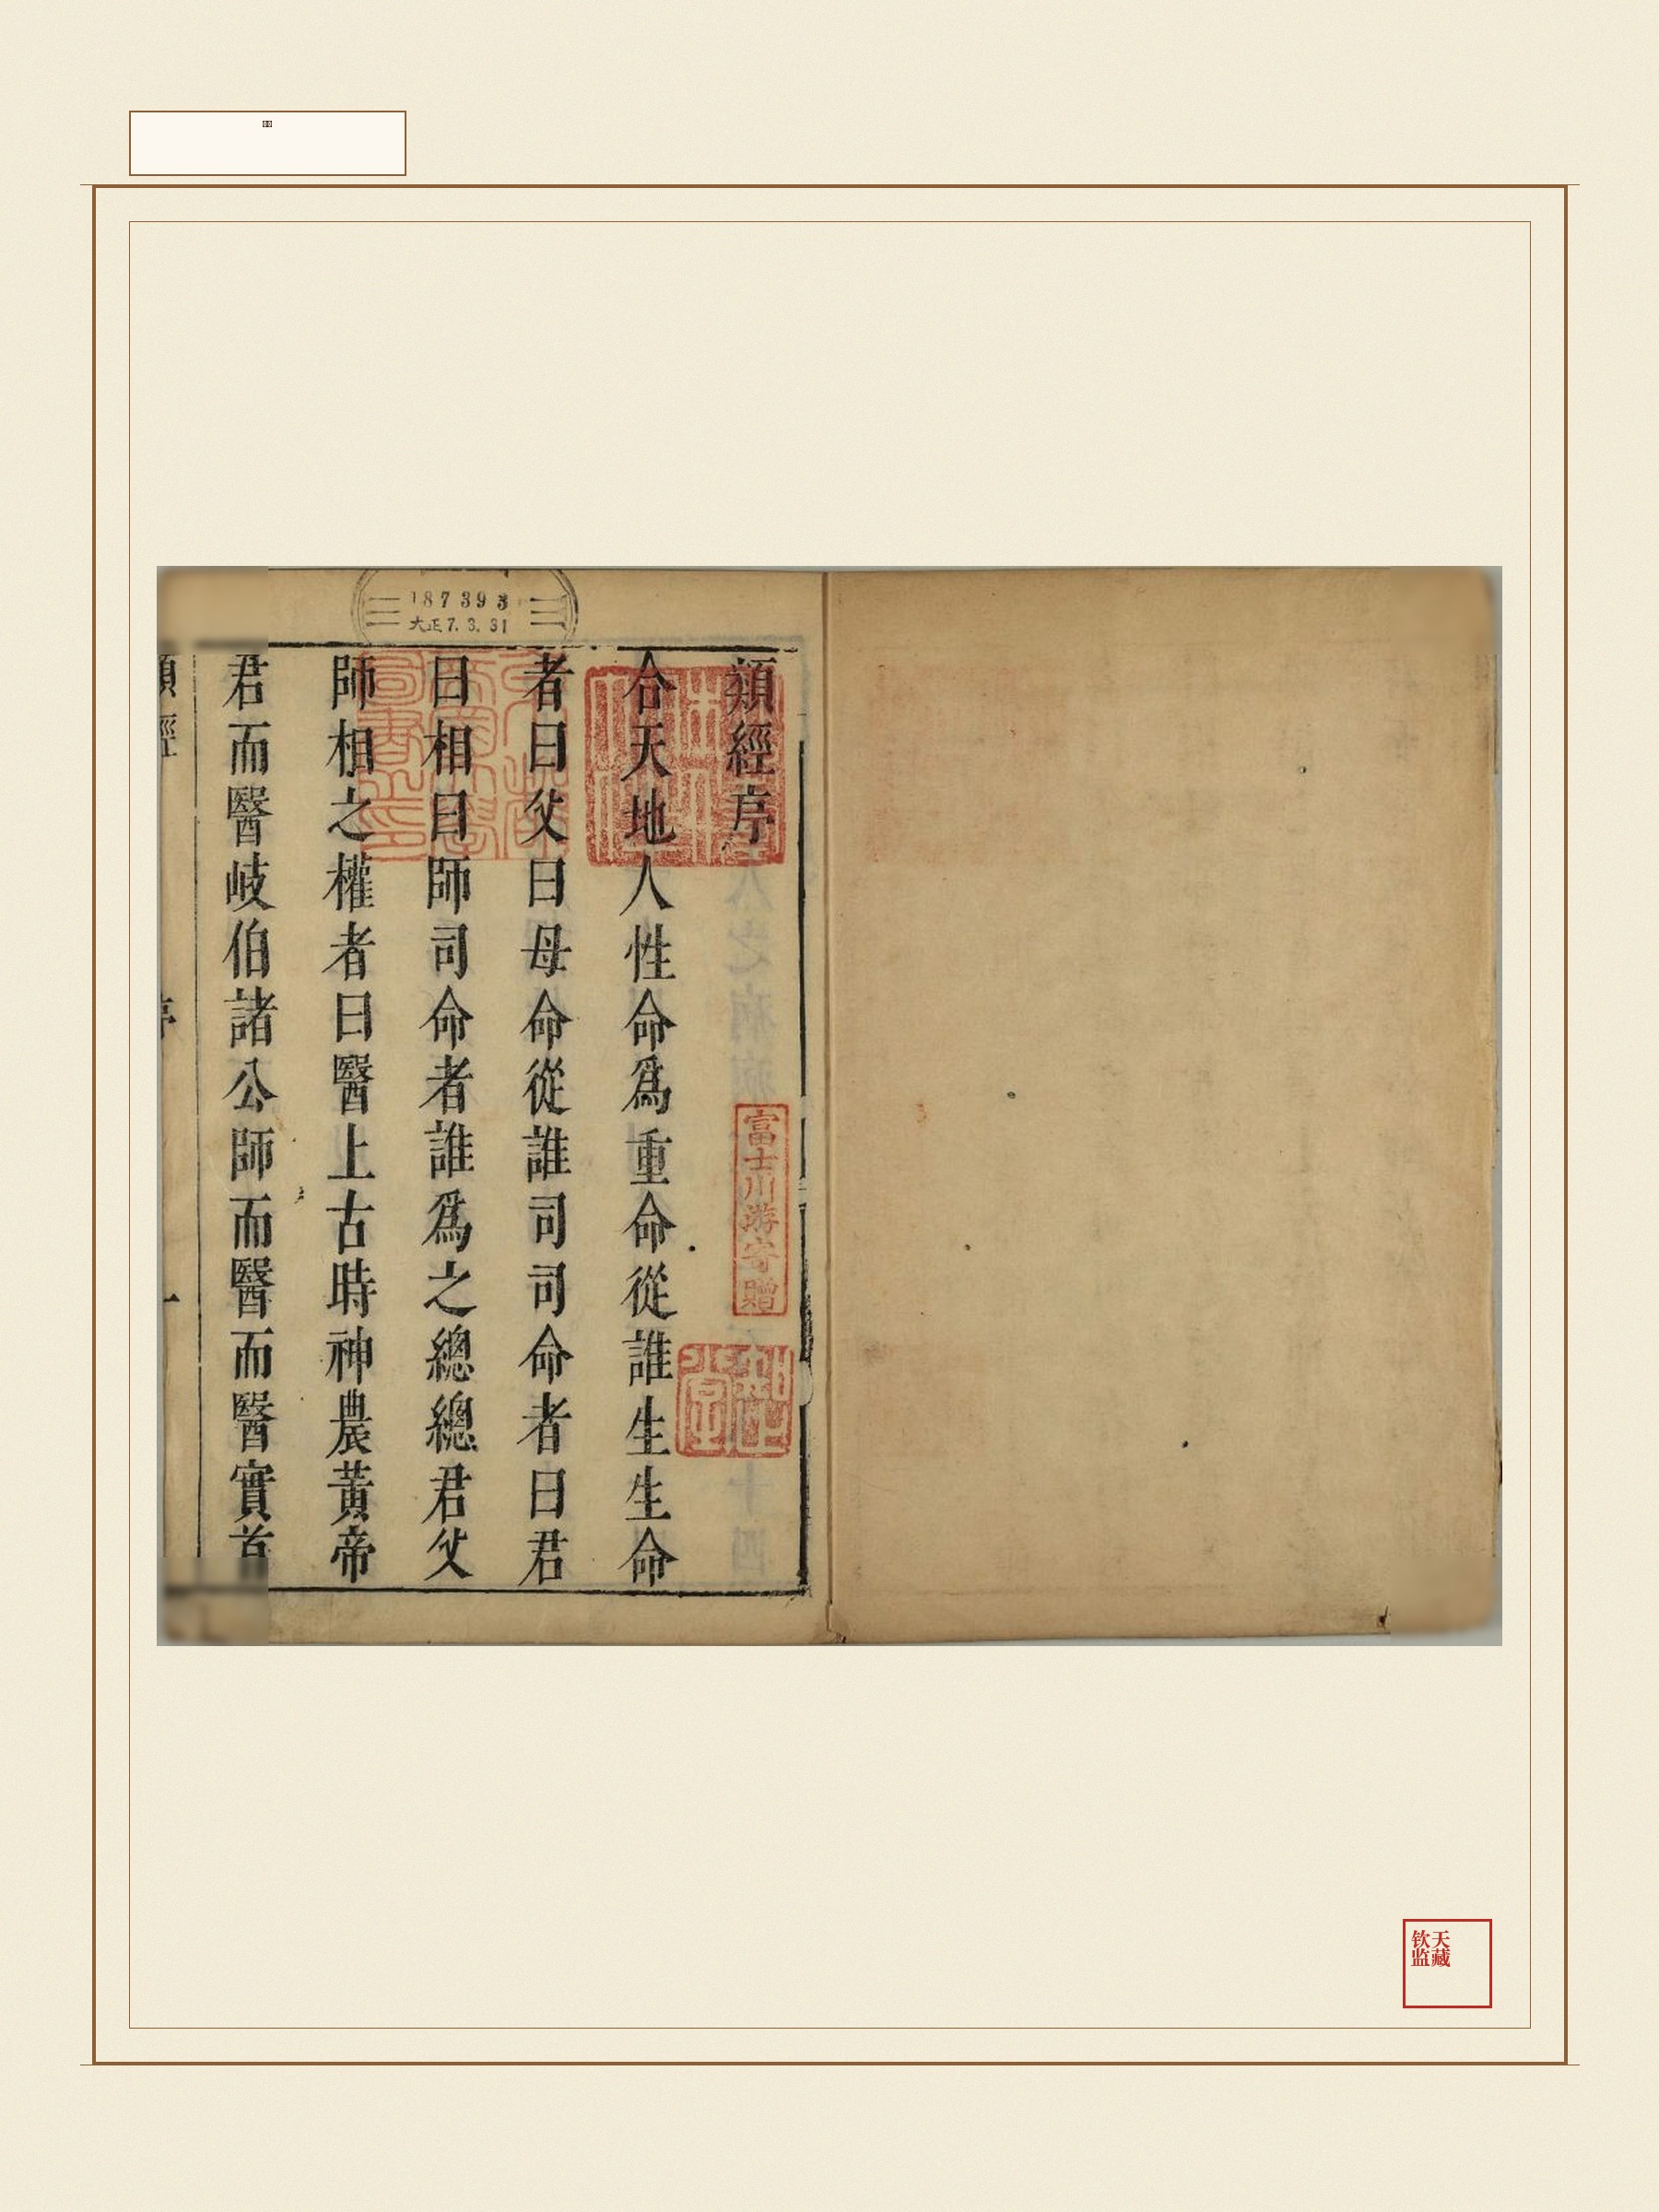 187393
大正7.3.31
類經序
合天地人性命爲重命從誰生生命
者曰父曰母命從誰司司命者曰君
曰相曰師司命者誰爲之總總君父
師相之權者曰醫上古時神農黃帝
君而醫岐伯諸公師而醫而醫實首
富士川游寄贈
類經
序
一
钦天
监藏